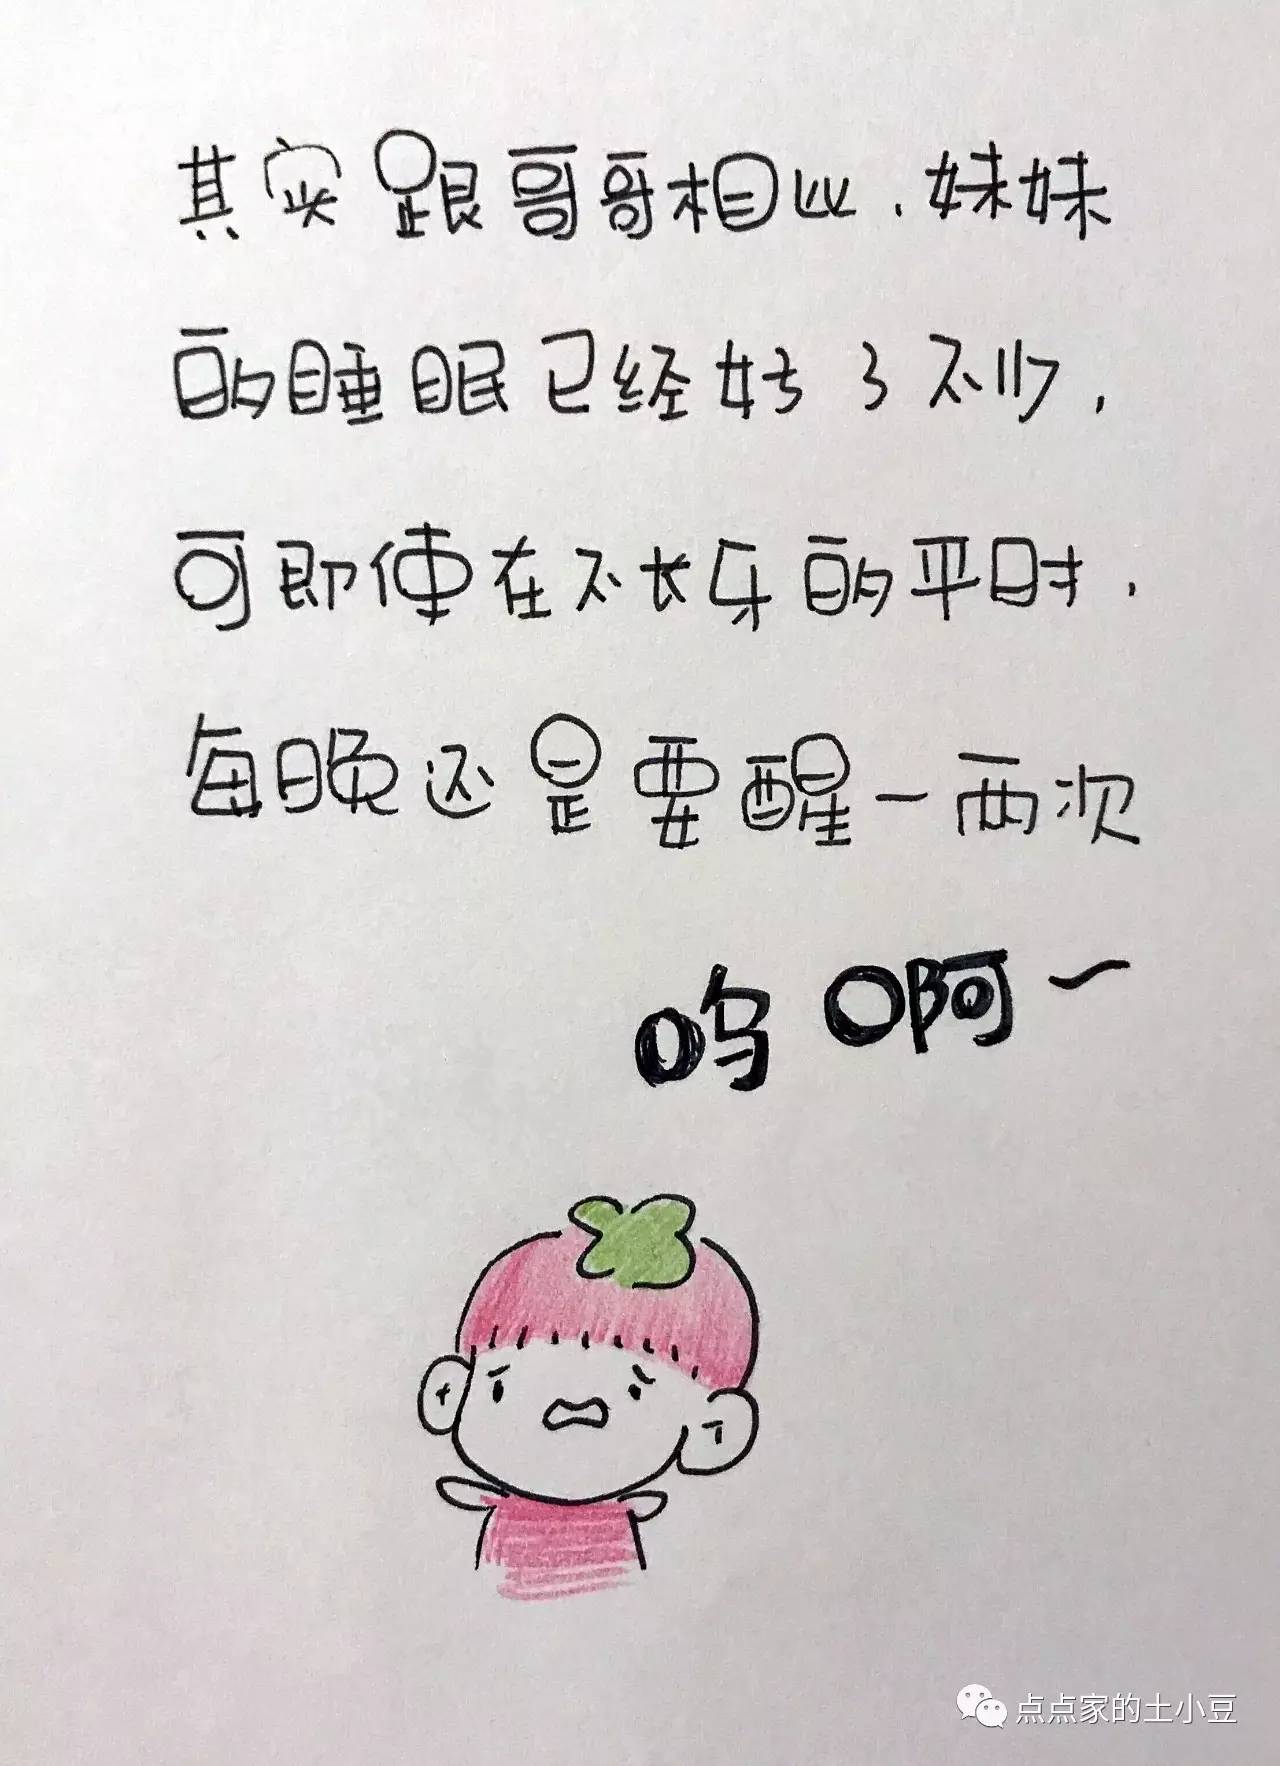 其实跟哥哥相比,妹妹
的睡眠已经好了不少,
可即使在不长牙的平时,
每晚还是要醒一两次
呜啊~
点点家的土小豆